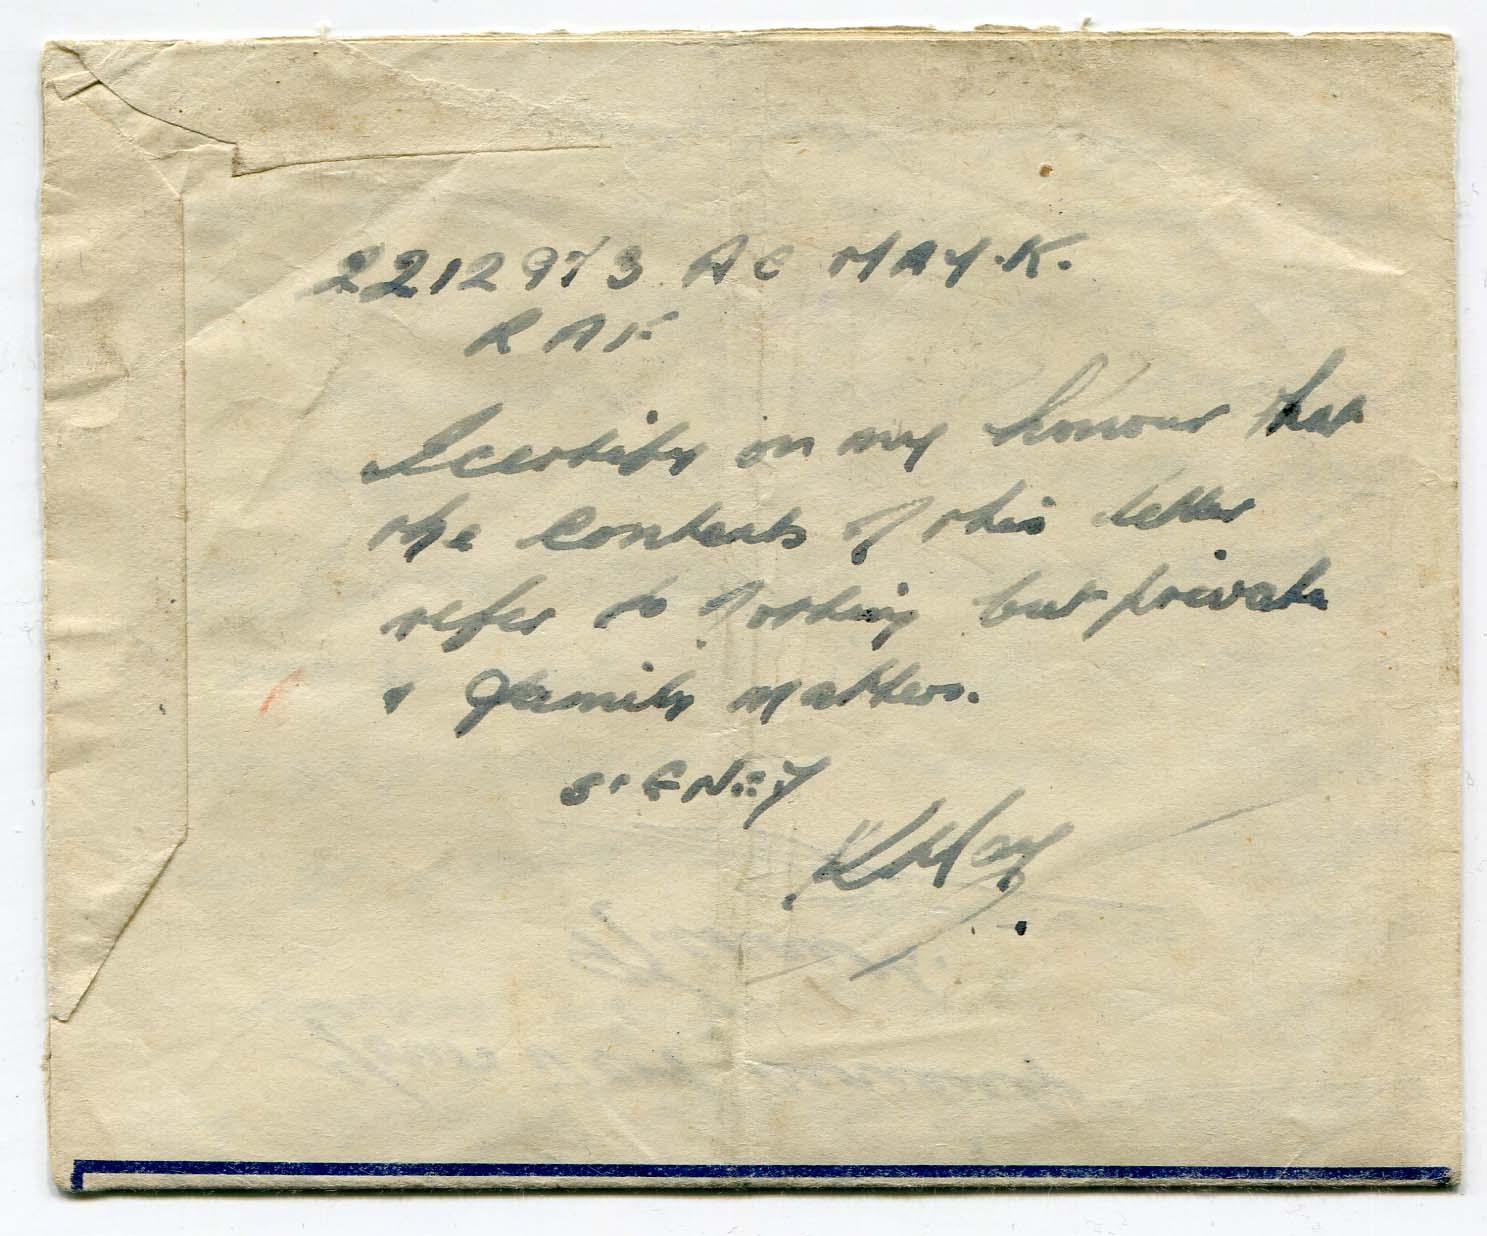 2212973 AC MAY. K.
RAF
I certify on my honour that
the contents of this letter
refer to nothing but private
& family matters.
SIGNED
K May